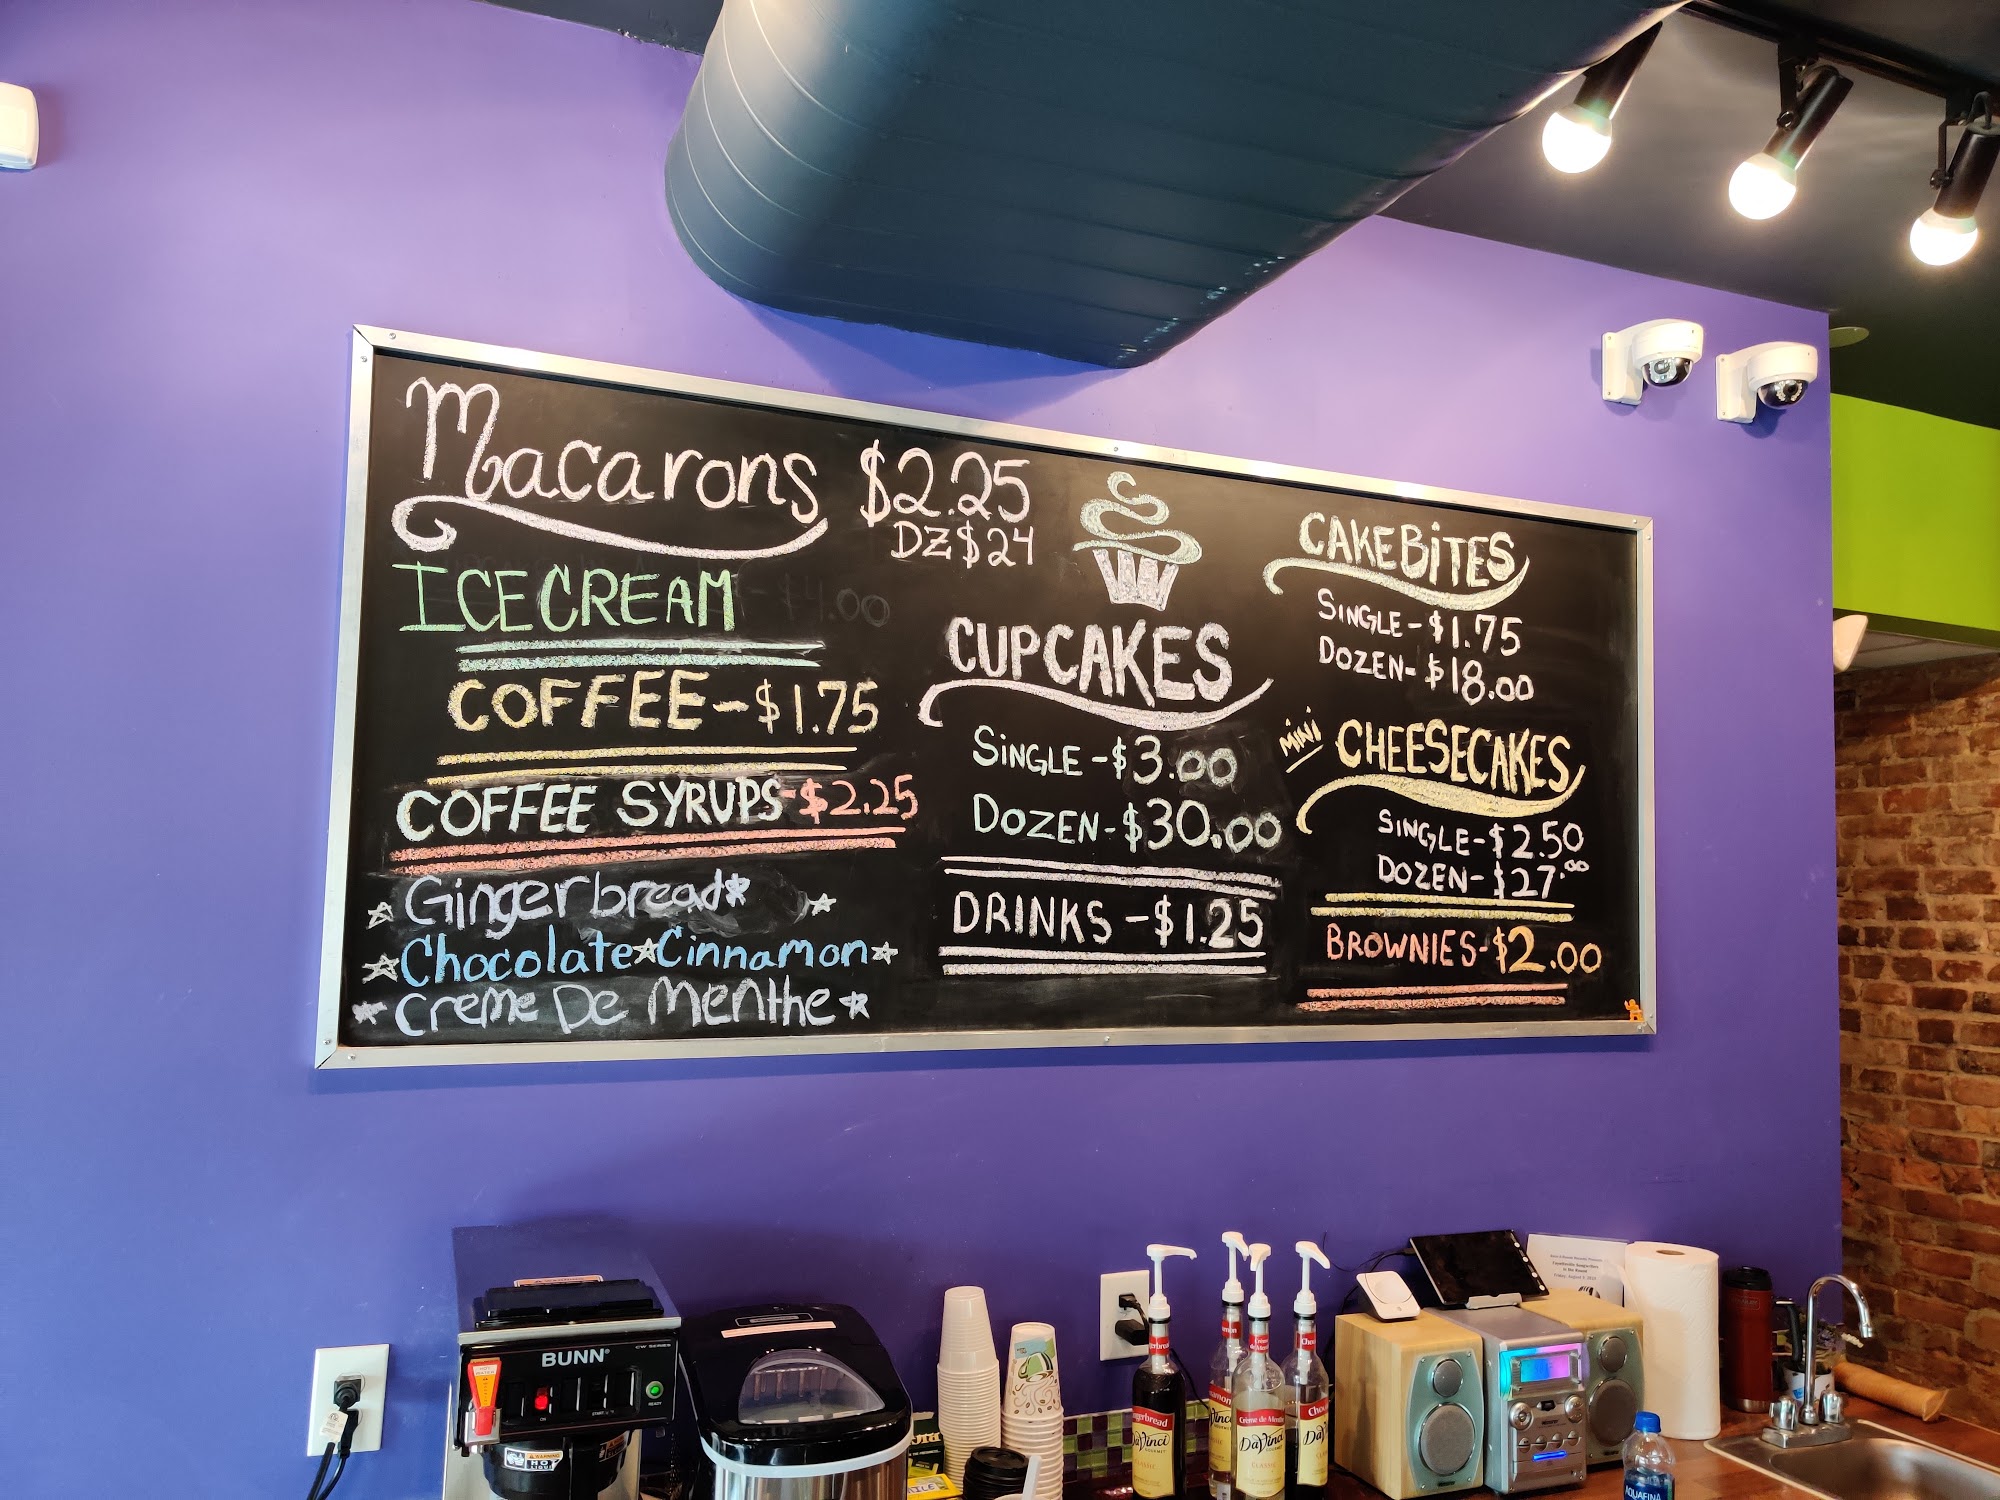 Macarons $2.25
DZ $24
ICE CREAM - $4.00
COFFEE - $1.75
COFFEE SYRUPS - $2.25
Gingerbread
Chocolate Cinnamon
Creme De Menthe
CUPCAKES
SINGLE - $3.00
DOZEN - $30.00
DRINKS - $1.25
CAKEBiTES
SINGLE - $1.75
DOZEN - $18.00
MiNi CHEESECAKES
SINGLE - $2.50
DOZEN - $27.00
BROWNIES - $2.00
BUNN
CW SERIES
READY
ON
WARNING
HOT
Gingerbread
DaVinci
GOURMET
CLASSIC
Crème de Menthe
DaVinci
CLASSIC
AQUAFINA